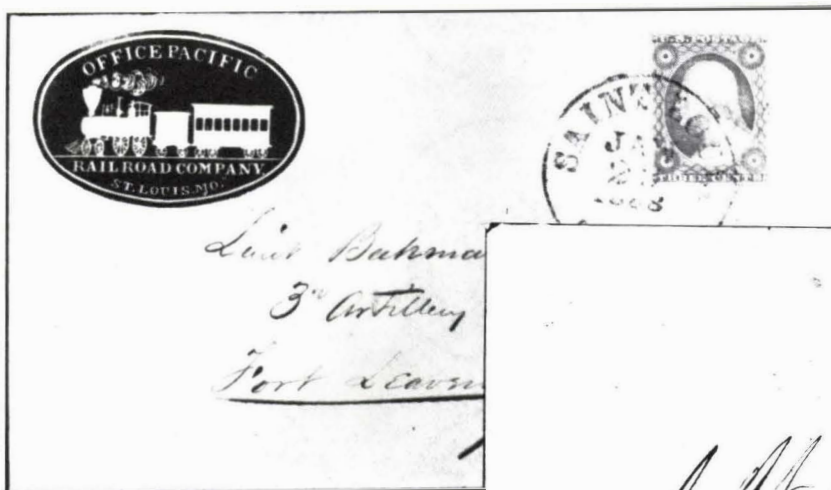 OFFICE PACIFIC
RAILROAD COMPANY
ST. LOUIS. MO.
SAINT
JA
Lieut
3rd Artillery
Fort Leaven